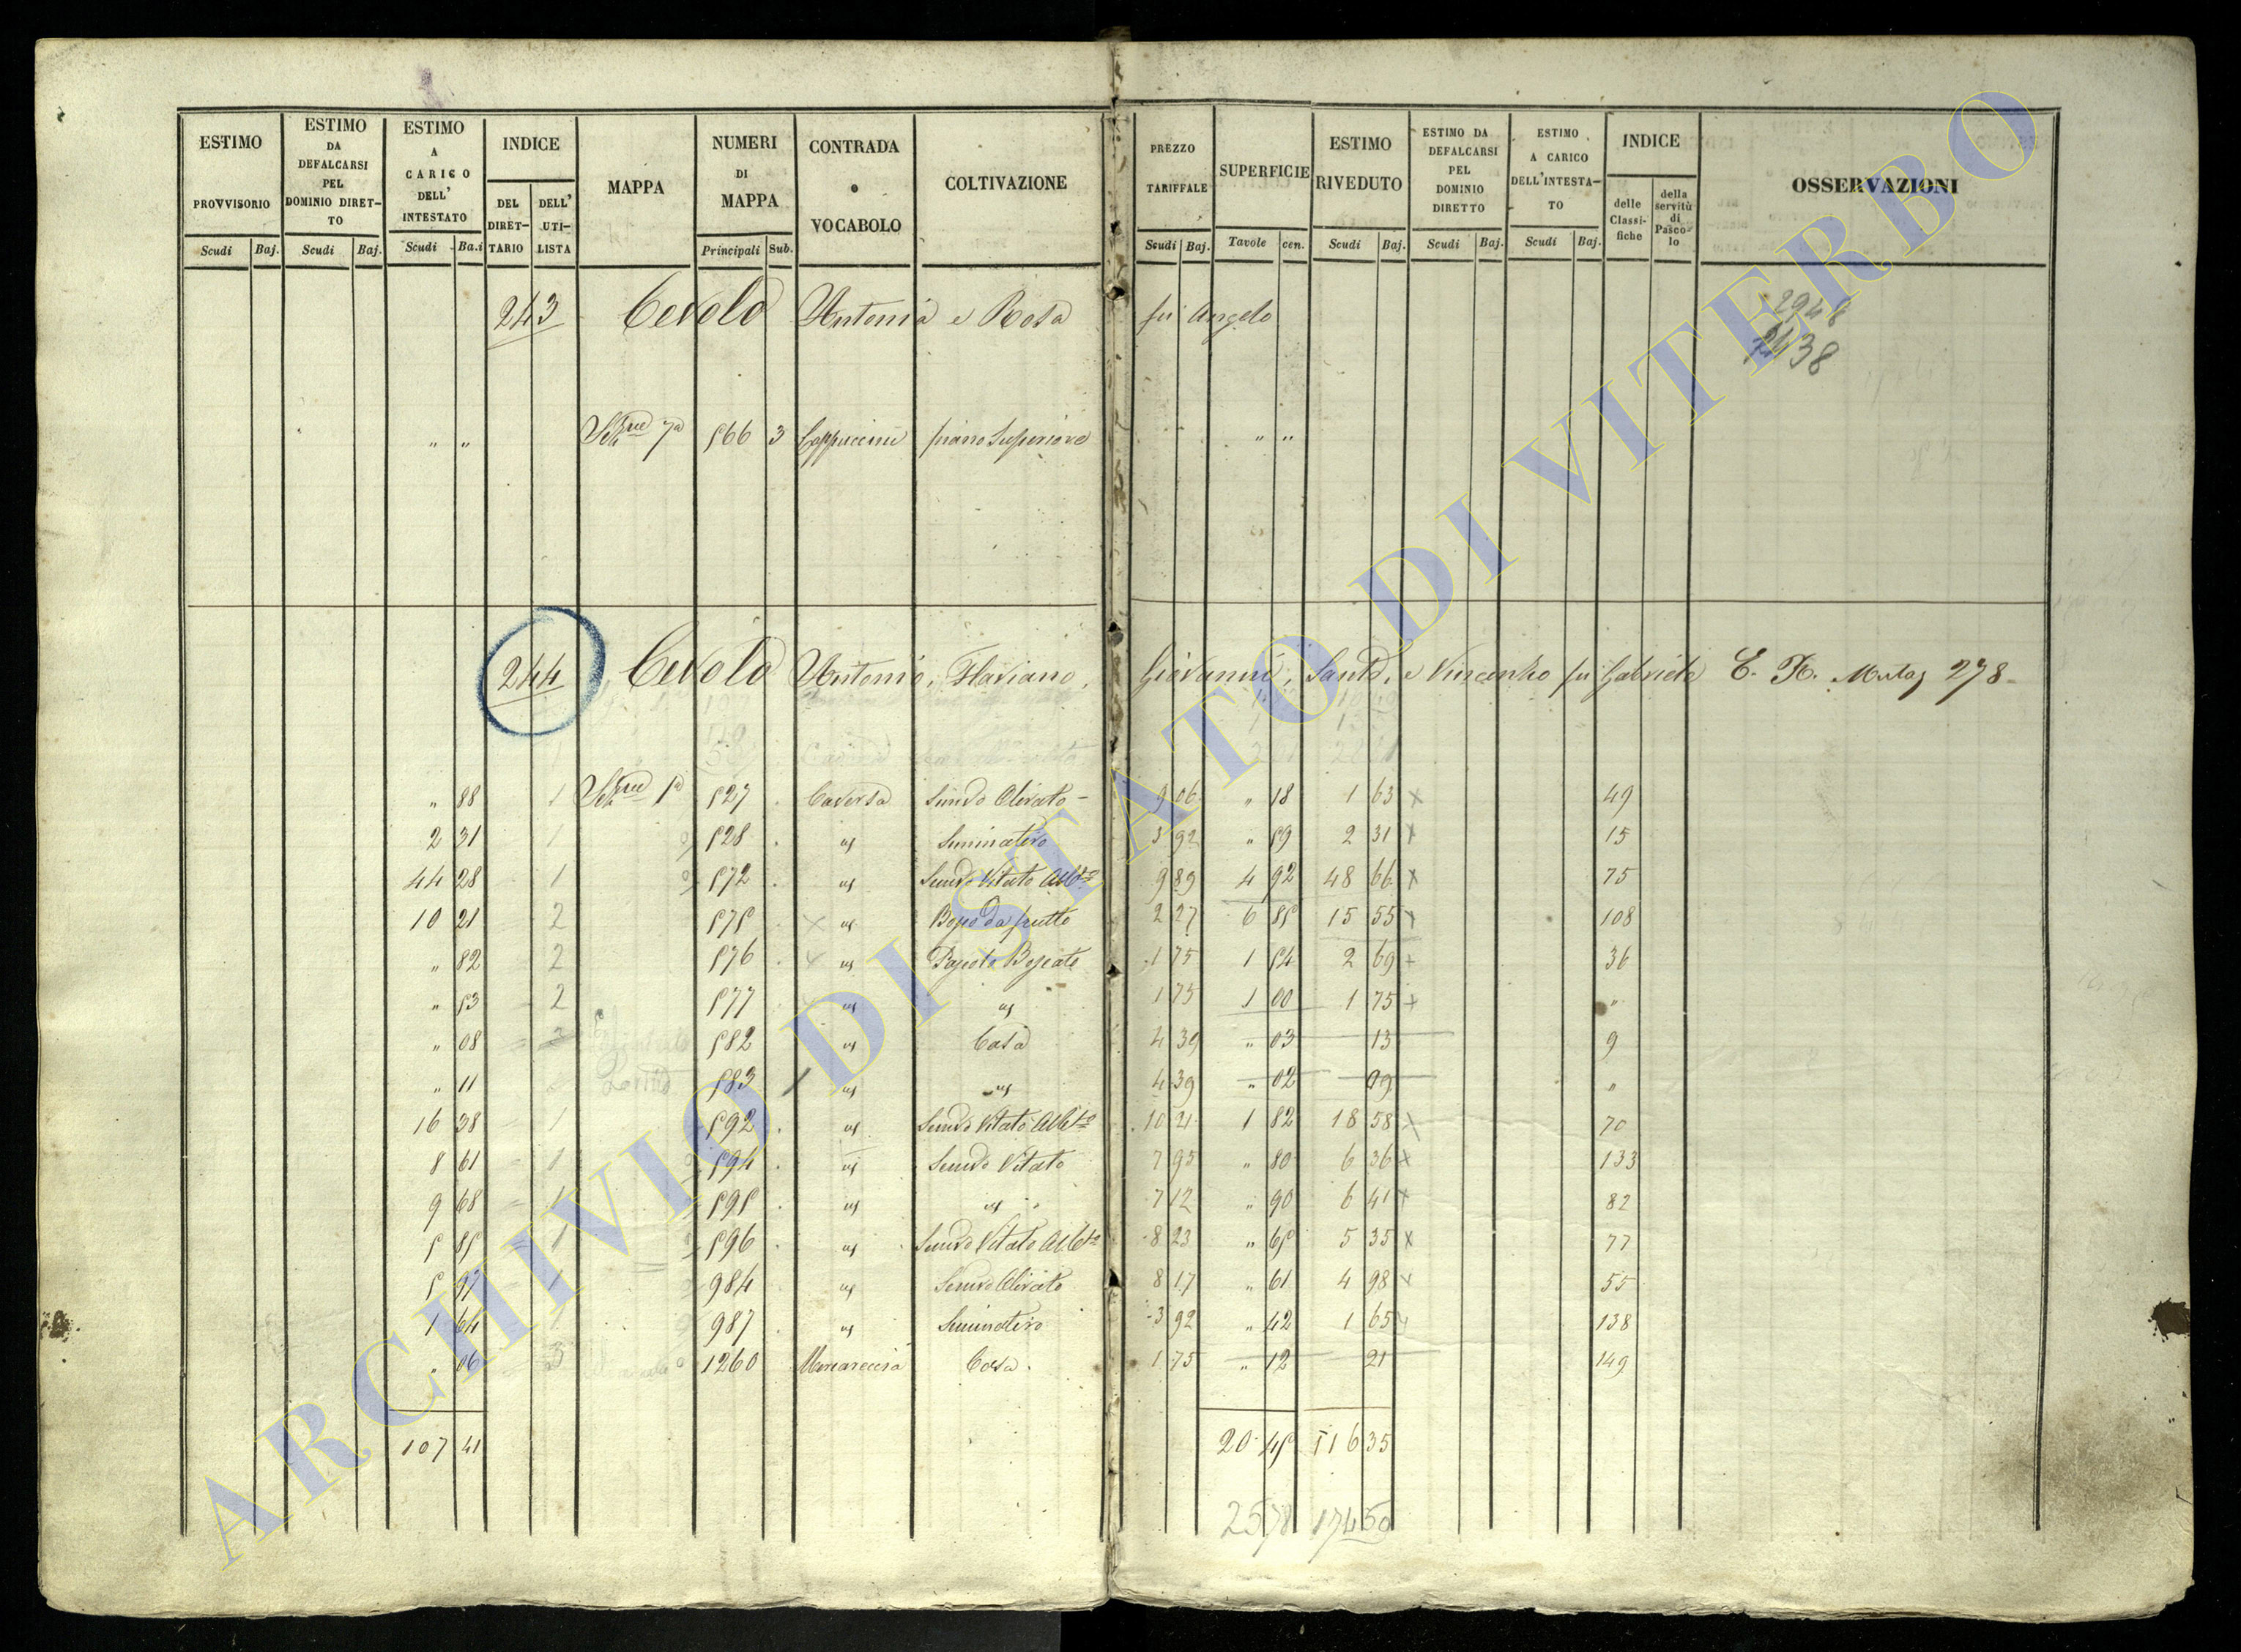 ESTIMO PROVVISORIO Scudi Baj.
ESTIMO DA DEFALCARSI PEL DOMINIO DIRET-TO Scudi Baj.
ESTIMO A CARICO DELL' INTESTATO Scudi Ba.i
INDICE DEL DIRET-TARIO DELL' UTI-LISTA
MAPPA
NUMERI DI MAPPA Principali Sub.
CONTRADA o VOCABOLO
COLTIVAZIONE
PREZZO TARIFFALE Scudi Baj.
SUPERFICIE Tavole cen.
ESTIMO RIVEDUTO Scudi Baj.
ESTIMO DA DEFALCARSI PEL DOMINIO DIRETTO Scudi Baj.
ESTIMO A CARICO DELL'INTESTA-TO Scudi Baj.
INDICE delle Classi-fiche della servitù di Pasco-lo
OSSERVAZIONI
243 Cevolo Antonia e Rosa fu Angelo 2948
38
" " 7a 566 3 Cappuccini piano Superiore " "
244 Cevolo Antonio, Flaviano, Giovanni, Santo, e Vincenzo fu Gabriele 278
" 88 1 1a 527 Caversa Olivato 9 06 " 18 1 63 x 49
2 31 1 528 " Seminativo 3 92 " 59 2 31 x 15
44 28 1 572 " Vitato 9 89 4 92 48 66 x 75
10 21 2 575 " Bosco da frutto 2 27 6 85 15 55 x 108
" 82 2 576 " Pascolo Boscato 1 75 1 54 2 69 + 36
" 53 2 577 " " 1 75 1 00 1 75 + "
" 08 582 " Casa 4 39 " 03 13 9
" 11 583 1 " " 4 39 " 02 09 "
16 38 1 592 " Vitato 10 21 1 82 18 58 x 70
8 61 1 594 " Vitato 7 95 " 80 6 36 x 133
9 68 1 595 " " 7 12 " 90 6 41 x 82
5 85 1 596 " Vitato 8 23 " 65 5 35 x 77
5 97 1 984 " Olivato 8 17 " 61 4 98 x 55
1 64 1 987 " Seminativo 3 92 " 42 1 65 x 138
" 06 3 1260 Casa 1 75 " 12 21 149
107 41 20 45 116 35
25 78 174 50
ARCHIVIO DI STATO DI VITERBO